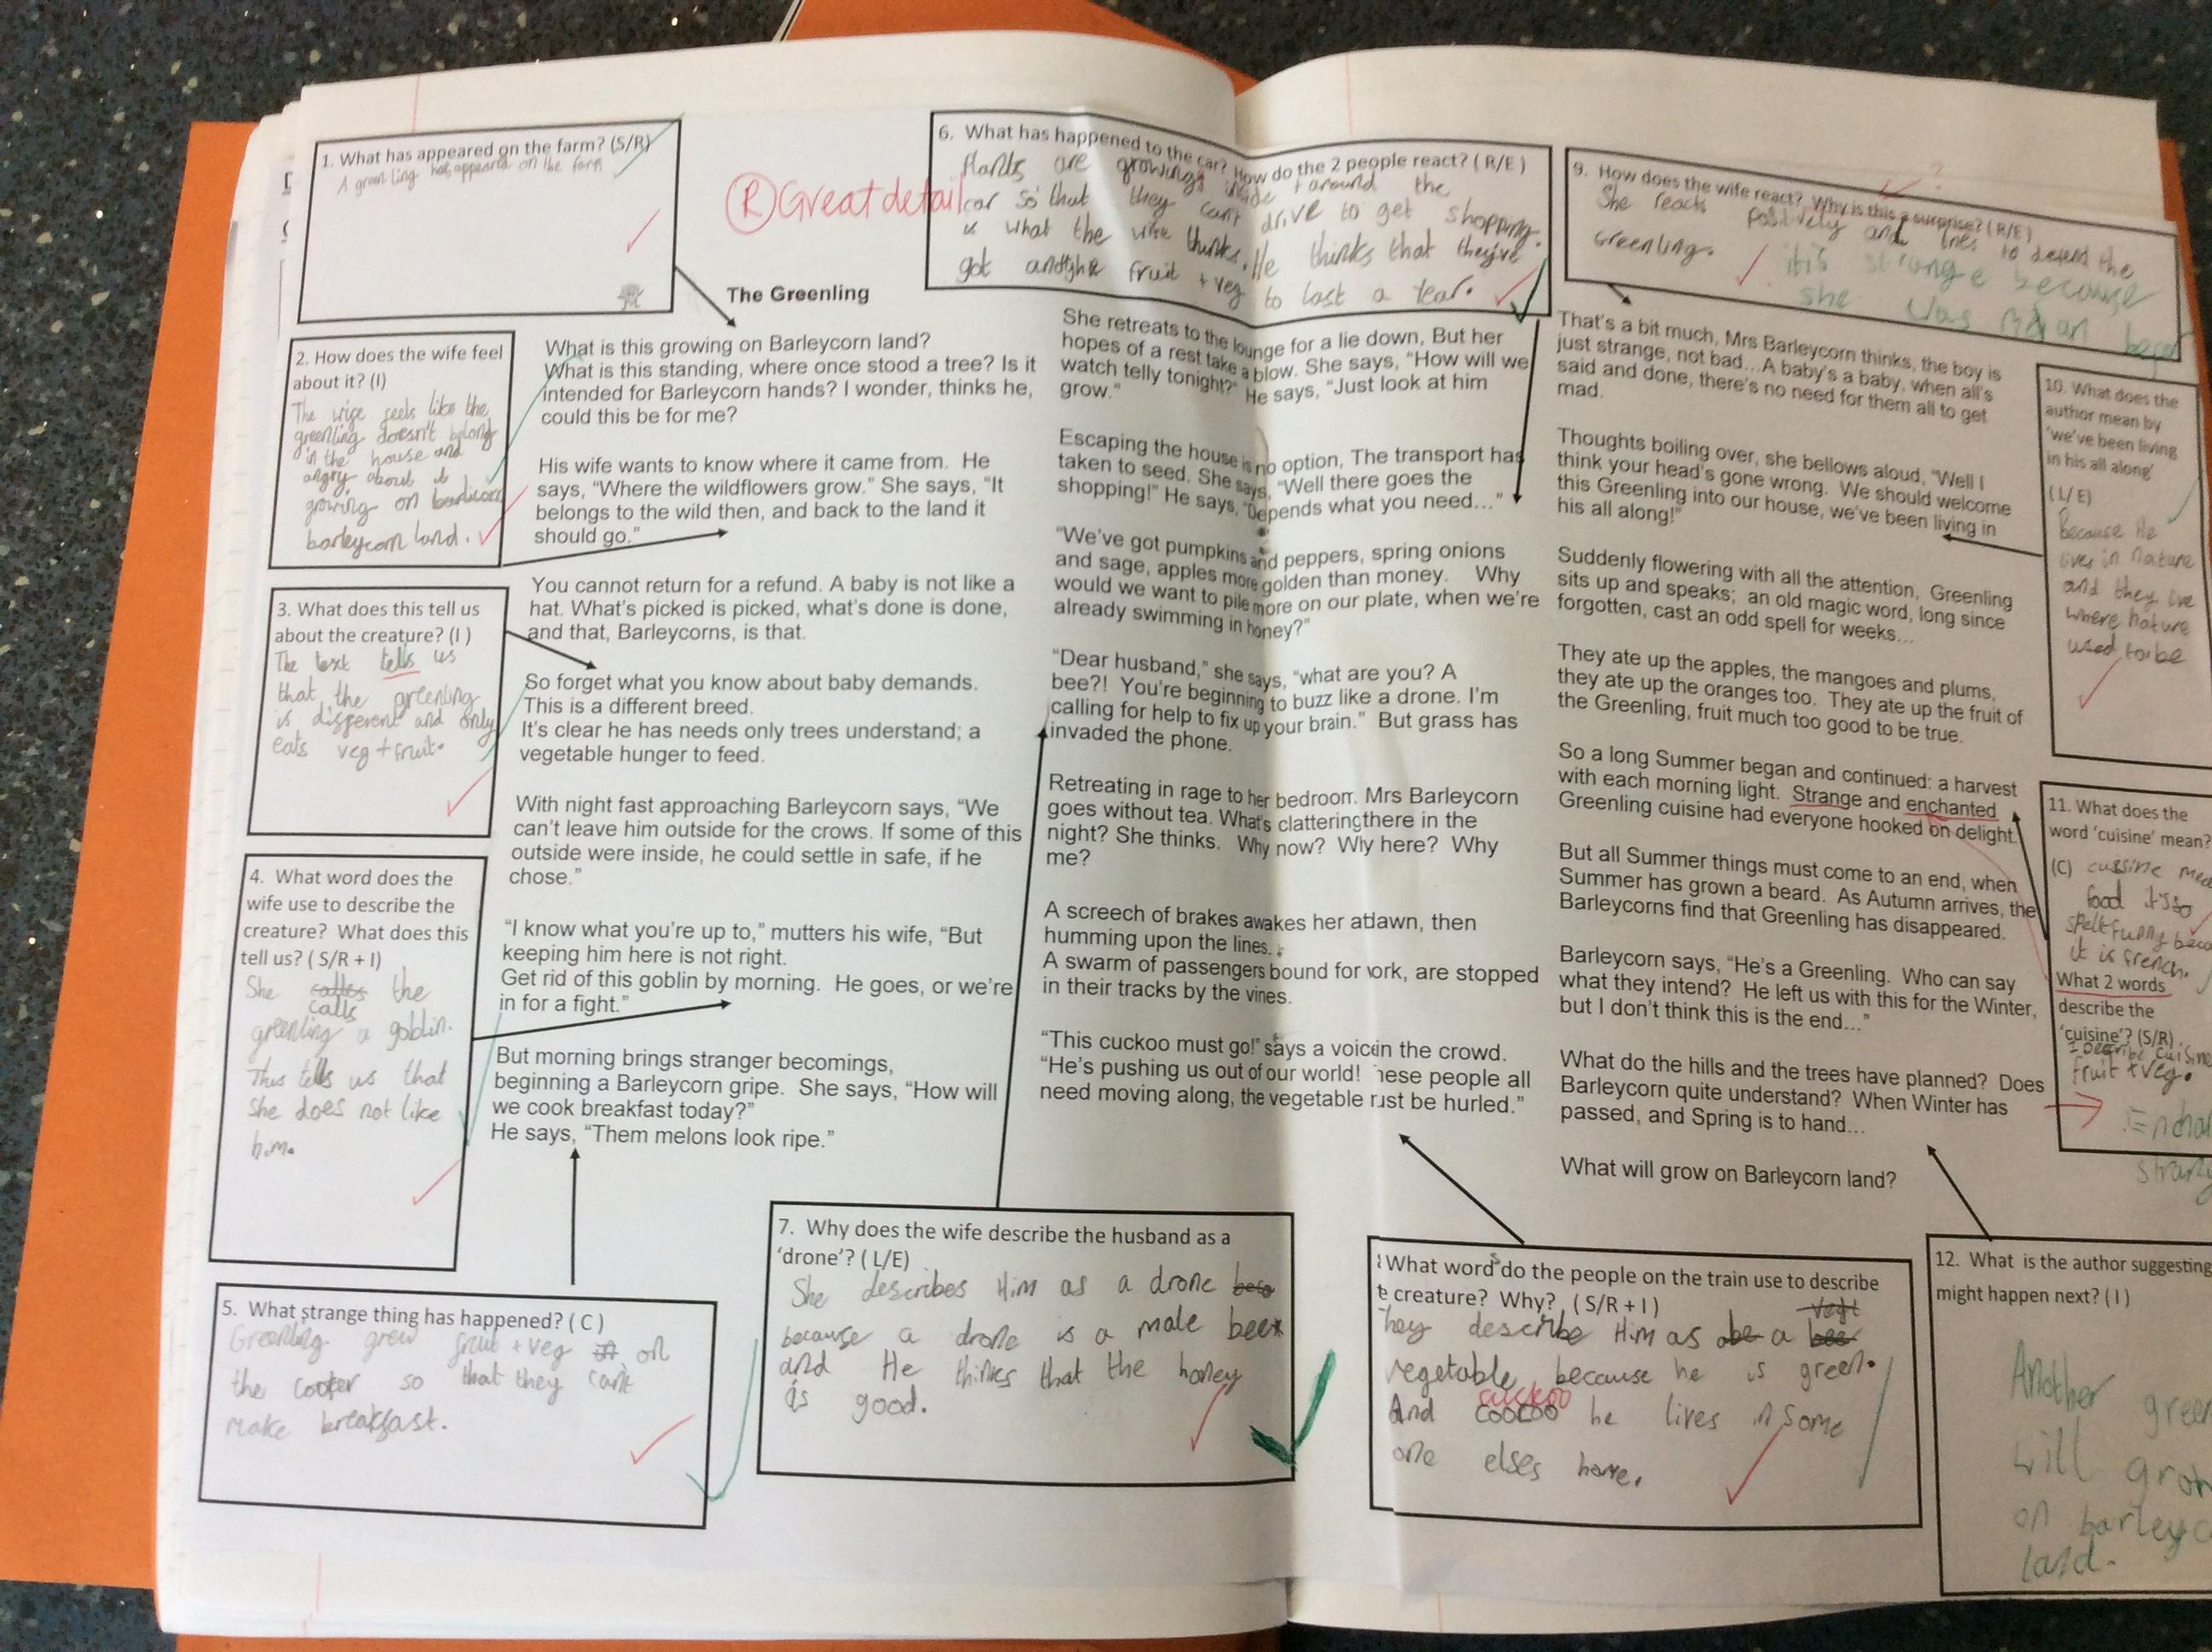 1. What has appeared on the farm? (S/R)
A greenling has appeared on the farm
Ⓡ Great detail
2. How does the wife feel
about it? (I)
The wife feels like the
greenling doesn't belong
in the house and
angry about it
growing on
barleycorn land.
3. What does this tell us
about the creature? (I)
The text tells us
that the greenling
is different and only
eats veg + fruit.
4. What word does the
wife use to describe the
creature? What does this
tell us? (S/R + I)
She calles the
calls
greenling a goblin.
This tells us that
she does not like
him.
5. What strange thing has happened? (C)
Greenling grew fruit + veg on
the cooker so that they can't
make breakfast.
The Greenling
What is this growing on Barleycorn land?
What is this standing, where once stood a tree? Is it
intended for Barleycorn hands? I wonder, thinks he,
could this be for me?
His wife wants to know where it came from. He
says, “Where the wildflowers grow.” She says, “It
belongs to the wild then, and back to the land it
should go.”
You cannot return for a refund. A baby is not like a
hat. What’s picked is picked, what’s done is done,
and that, Barleycorns, is that.
So forget what you know about baby demands.
This is a different breed.
It’s clear he has needs only trees understand; a
vegetable hunger to feed.
With night fast approaching Barleycorn says, “We
can’t leave him outside for the crows. If some of this
outside were inside, he could settle in safe, if he
chose.”
“I know what you’re up to,” mutters his wife, “But
keeping him here is not right.
Get rid of this goblin by morning. He goes, or we’re
in for a fight.”
But morning brings stranger becomings,
beginning a Barleycorn gripe. She says, “How will
we cook breakfast today?”
He says, “Them melons look ripe.”
6. What has happened to the car? How do the 2 people react? (R/E)
Plants are growing inside + around the
car so that they can't drive to get shopping.
is what the wife thinks. He thinks that they've
got fruit + veg to last a year.
She retreats to the lounge for a lie down, But her
hopes of a rest take a blow. She says, “How will we
watch telly tonight?” He says, “Just look at him
grow.”
Escaping the house is no option, The transport has
taken to seed. She says, “Well there goes the
shopping!” He says, “Depends what you need…”
“We’ve got pumpkins and peppers, spring onions
and sage, apples more golden than money. Why
would we want to pile more on our plate, when we’re
already swimming in honey?”
“Dear husband,” she says, “what are you? A
bee?! You’re beginning to buzz like a drone. I’m
calling for help to fix up your brain.” But grass has
invaded the phone.
Retreating in rage to her bedroom. Mrs Barleycorn
goes without tea. What’s clattering there in the
night? She thinks. Why now? Why here? Why
me?
A screech of brakes awakes her at dawn, then
humming upon the lines.
A swarm of passengers bound for work, are stopped
in their tracks by the vines.
“This cuckoo must go!” says a voice in the crowd.
“He’s pushing us out of our world! These people all
need moving along, the vegetable must be hurled.”
7. Why does the wife describe the husband as a
‘drone’? (L/E)
She describes Him as a drone
because a drone is a male bee
and He thinks that the honey
is good.
9. How does the wife react? Why is this a surprise? (R/E)
?
She reacts positively and tries to defend the
Greenling. it is strange because
she was
That’s a bit much, Mrs Barleycorn thinks, the boy is
just strange, not bad…A baby’s a baby, when all’s
said and done, there’s no need for them all to get
mad.
Thoughts boiling over, she bellows aloud, “Well I
think your head’s gone wrong. We should welcome
this Greenling into our house, we’ve been living in
his all along!”
Suddenly flowering with all the attention, Greenling
sits up and speaks; an old magic word, long since
forgotten, cast an odd spell for weeks…
They ate up the apples, the mangoes and plums,
they ate up the oranges too. They ate up the fruit of
the Greenling, fruit much too good to be true.
So a long Summer began and continued: a harvest
with each morning light. Strange and enchanted
Greenling cuisine had everyone hooked on delight.
But all Summer things must come to an end, when
Summer has grown a beard. As Autumn arrives, the
Barleycorns find that Greenling has disappeared.
Barleycorn says, “He’s a Greenling. Who can say
what they intend? He left us with this for the Winter,
but I don’t think this is the end…”
What do the hills and the trees have planned? Does
Barleycorn quite understand? When Winter has
passed, and Spring is to hand…
What will grow on Barleycorn land?
What words do the people on the train use to describe
creature? Why? (S/R + I)
They describe Him as a
vegetable because he is green.
cuckoo
And coocoo he lives in some
one elses home.
10. What does the
author mean by
‘we’ve been living
in his all along’
(L/E)
Because He
lives in nature
and they live
where nature
used to be
11. What does the
word ‘cuisine’ mean?
(C) cussine
food
spelt funny
it is french.
What 2 words
describe the
‘cuisine’? (S/R)
I describe cuisine
fruit + veg.
12. What is the author suggesting
might happen next? (I)
Another
will
on
land.